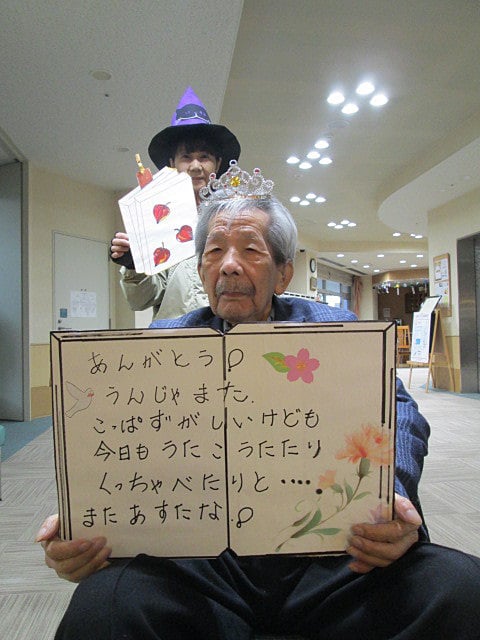 あんがとう!
うんじゃまた.
こっぱずがしいけども
今日もうたこうたたり
くっちゃべたりと・・・・・
またあすたな.!